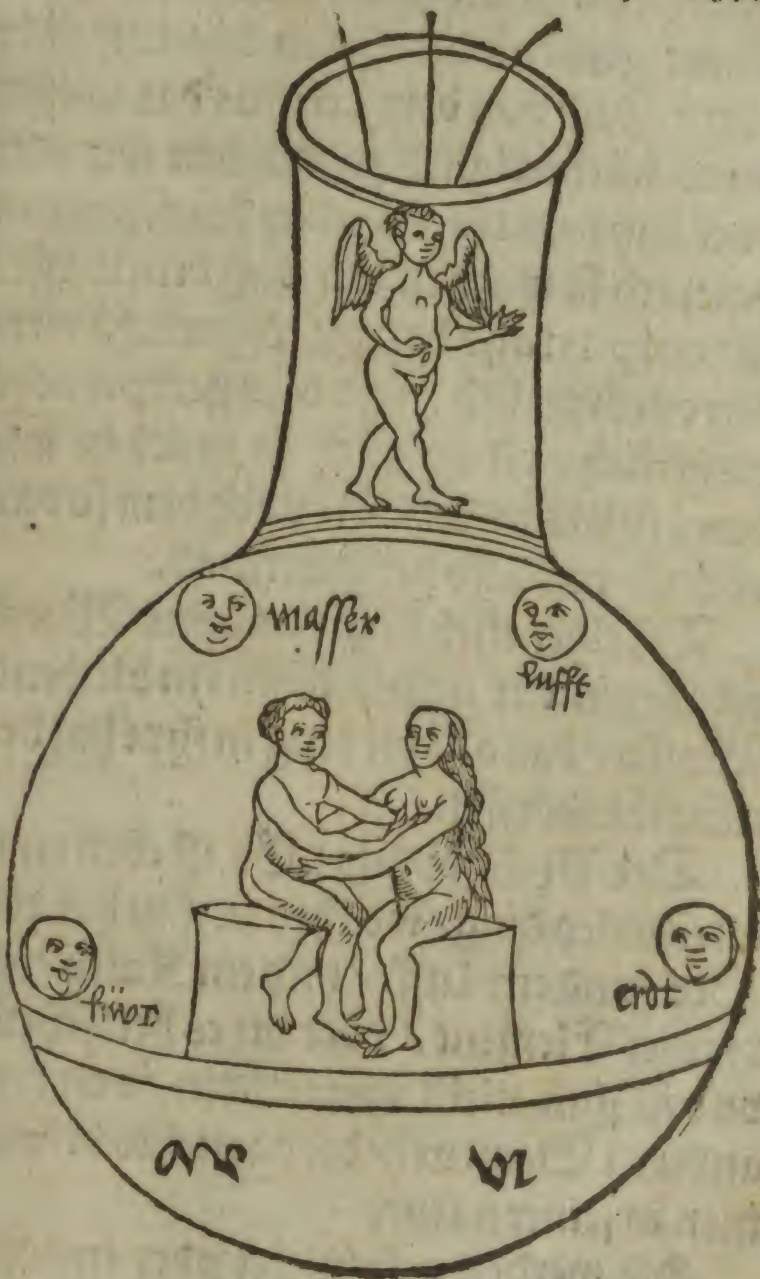 wasser
lufft
füwr
erdt